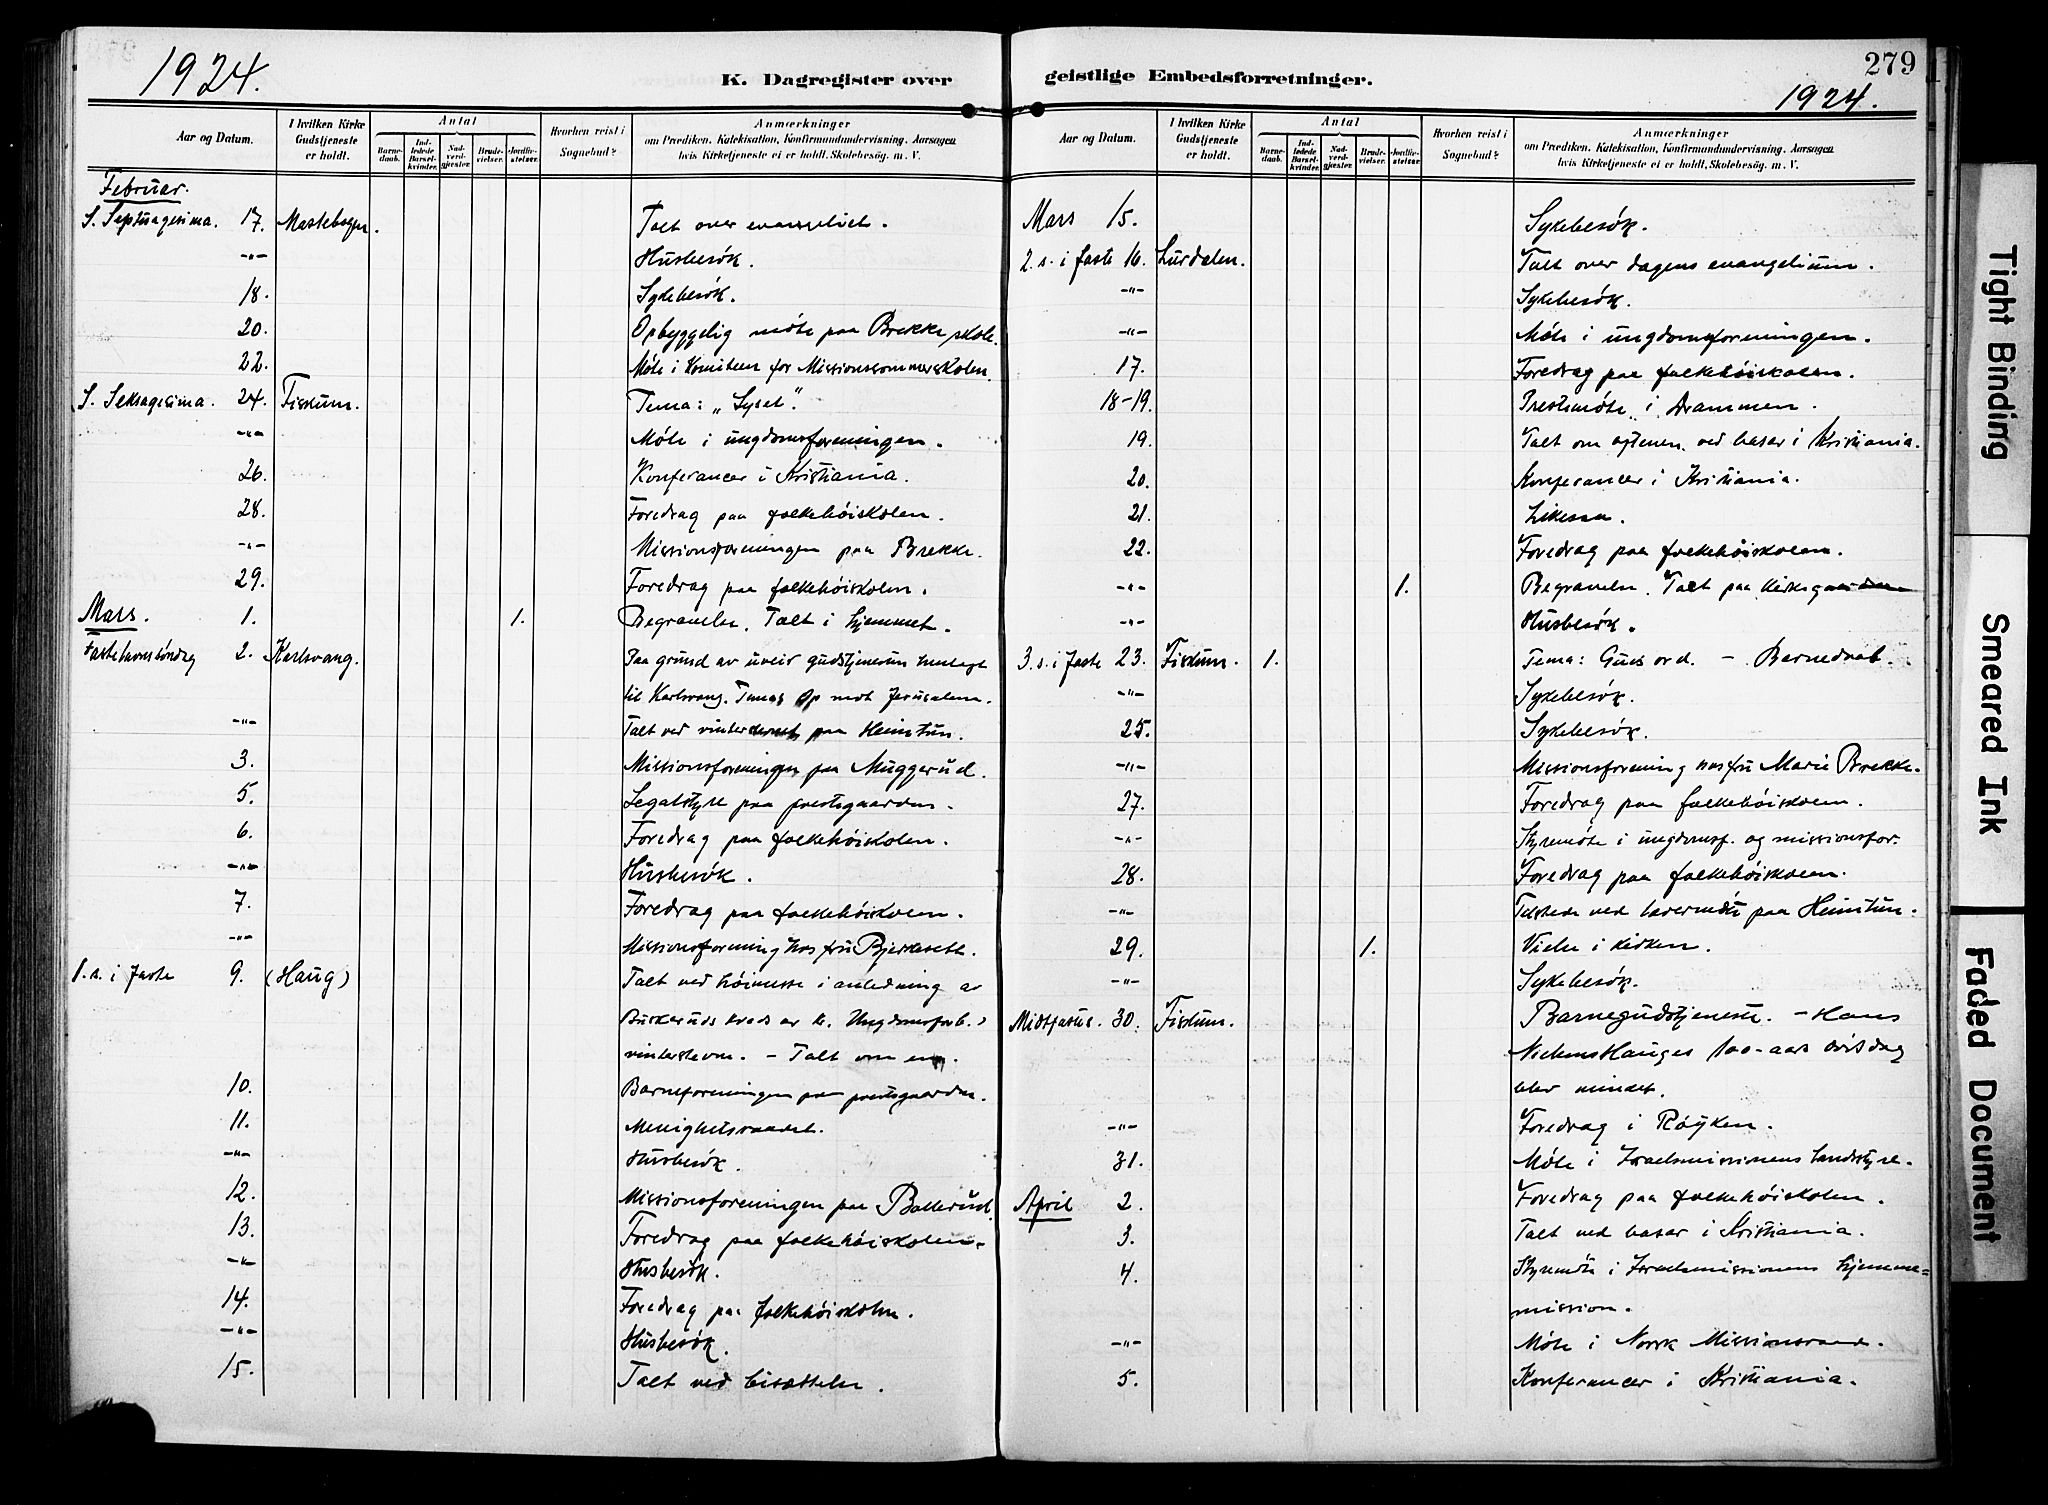 1924.
K. Dagregister over
Aar og Datum.
I hvilken Kirke Gudstjeneste er holdt.
Antal
Barnedaab.
Indledede Barselkvinder.
Nadverdgjester.
Brudevielser.
Jordfæstelser.
Hvorhen reist i Sognebud?
Anmærkninger
om Prædiken, Katekisation, Konfirmandundervisning, Aarsagen
hvis Kirketjeneste ei er holdt, Skolebesøg. m. V.
Februar.
S. Septuagesima. 17. Mastebogen. Talt over evangeliet.
-"- Husbesøk.
18. Sykebesøk.
20. Opbyggelig møte paa Brekke skole.
22. Møte i Komiteen for Missionssommerskolen.
S. Seksagesima. 24. Fiskum. Tema: „Lyset".
-"- Møte i ungdomsforeningen.
26. Konferancer i Kristiania.
28. Foredrag paa folkehøiskolen.
-"- Missionsforeningen paa Brekke.
29. Foredrag paa folkehøiskolen.
Mars. 1. 1. Begravelse. Talt i hjemmet.
Fastelavnssöndag 2. Karlsvang. Paa grund av uveir gudstjenesten henlagt
til Karlsvang. Tema: Op mot Jerusalem.
-"- Talt ved vinterstevnet paa Heimtun.
3. Missionsforeningen paa Muggerud.
5. Legatstyre paa prestegaarden.
6. Foredrag paa folkehøiskolen.
-"- Husbesøk.
7. Foredrag paa folkehøiskolen.
-"- Missionsforening hos fru Bjerkesett.
1. s. i faste 9. (Haug) Talt ved høimesse i anledning av
Buskeruds kreds av kr. Ungdomsforb.s
vinterstevne. - Talt om em.
10. Barneforeningen paa prestegaarden.
11. Menighetsraadet.
-"- Husbesøk.
12. Missionsforeningen paa Bollerud.
13. Foredrag paa folkehøiskolen.
-"- Husbesøk.
14. Foredrag paa folkehøiskolen.
-"- Husbesøk.
15. Talt ved bisættelse.
geistlige Embedsforretninger.
279
1924.
Aar og Datum.
I hvilken Kirke Gudstjeneste er holdt.
Antal
Barnedaab.
Indledede Barselkvinder.
Nadverdgjester.
Brudevielser.
Jordfæstelser.
Hvorhen reist i Sognebud?
Anmærkninger
om Prædiken, Katekisation, Konfirmandundervisning, Aarsagen
hvis Kirketjeneste ei er holdt, Skolebesøg. m. V.
Mars 15. Sykebesøk.
2. s. i faste 16. Lurdalen. Talt over dagens evangelium.
-"- Sykebesøk.
-"- Møte i ungdomsforeningen.
17. Foredrag paa folkehøiskolen.
18-19. Prestemøte i Drammen.
19. Talt om aftenen ved basar i Kristiania.
20. Konferancer i Kristiania.
21. Likesaa.
22. Foredrag paa folkehøiskolen.
-"- 1. Begravelse. Talt paa kirkegaarden
-"- Husbesøk.
3. s. i faste 23. Fiskum. 1. Tema: Guds ord. - Barnedaab.
-"- Sykebesøk.
25. Sykebesøk.
-"- Missionsforening hos fru Marie Brekke.
27. Foredrag paa folkehøiskolen.
-"- Styremøte i ungdomsf. og missionsfor.
28. Foredrag paa folkehøiskolen.
-"- Tilstede ved lærermøte paa Heimtun.
29. 1. Vielse i kirken.
-"- Sykebesøk.
Midtfaste. 30. Fiskum. Barnegudstjeneste. - Hans
Nielsens Hauges 100-aars dødsdag
blev mindet.
-"- Foredrag i Røyken.
31. Møte i Israelsmissionens landsstyre.
April 2. Foredrag paa folkehøiskolen.
3. Talt ved basar i Kristiania.
4. Styremøte i Israelsmissionens hjemme=
mission.
-"- Møte i Norsk Missionsraad.
5. Konferancer i Kristiania.
Tight Binding
Smeared Ink
Faded Document